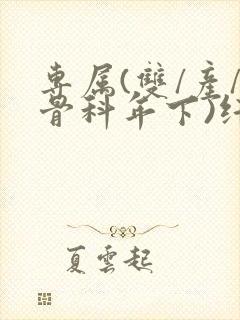 專属(雙/產/
骨科年下)纟
夏雲起